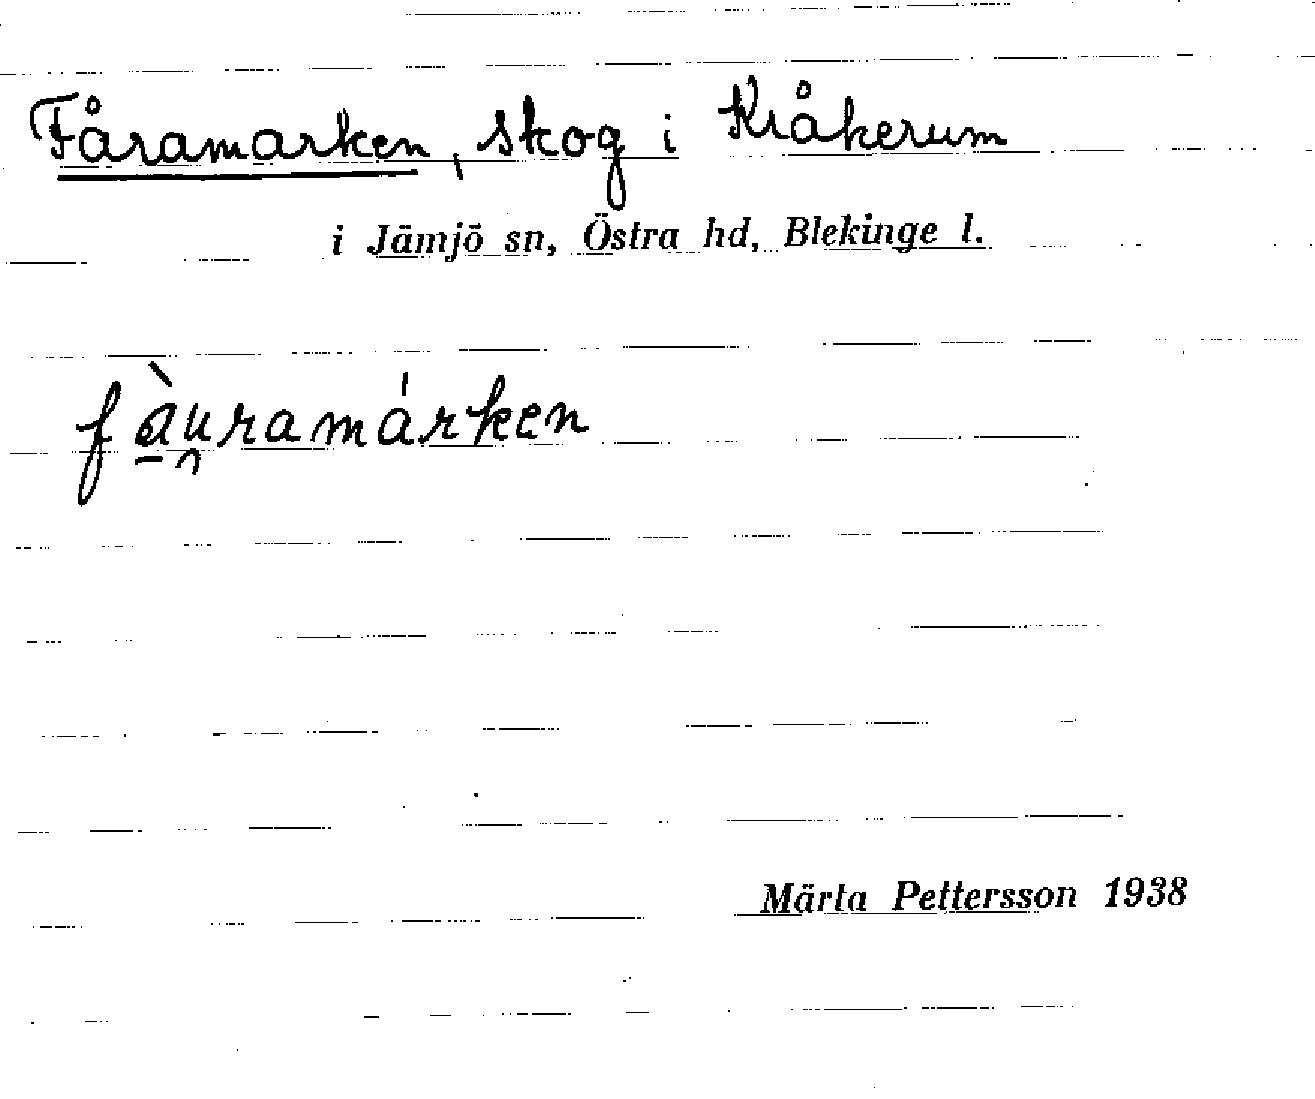 Fåramarken, skog i Kråkerum
i Jämjö sn, Östra hd, Blekinge l.
fà̱u̯ramárken
Märta Pettersson 1938